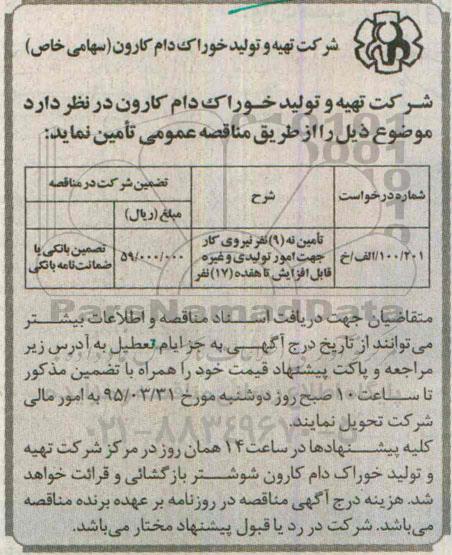 شرکت تهیه و تولید خوراک دام کارون (سهامی خاص)
شرکت تهیه و تولید خوراک دام کارون در نظر دارد
موضوع ذیل را از طریق مناقصه عمومی تأمین نماید:
شماره درخواست شرح تضمین شرکت در مناقصه
مبلغ (ریال)
۱۰۰/۲۰۱/الف/خ تأمین نه (۹) نفر نیروی کار ۵۹/۰۰۰/۰۰۰ تضمین بانکی یا
جهت امور تولیدی و غیره ضمانت‌نامه بانکی
قابل افزایش تا هفده (۱۷) نفر
متقاضیان جهت دریافت اسناد مناقصه و اطلاعات بیشتر
می‌توانند از تاریخ درج آگهی به جز ایام تعطیل به آدرس زیر
مراجعه و پاکت پیشنهاد قیمت خود را همراه با تضمین مذکور
تا ساعت ۱۰ صبح روز دوشنبه مورخ ۹۵/۰۳/۳۱ به امور مالی
شرکت تحویل نمایند.
کلیه پیشنهادها در ساعت ۱۴ همان روز در مرکز شرکت تهیه
و تولید خوراک دام کارون شوشتر بازگشائی و قرائت خواهد
شد. هزینه درج آگهی مناقصه در روزنامه بر عهده برنده مناقصه
می‌باشد. شرکت در رد یا قبول پیشنهاد مختار می‌باشد.
ParsNamadData
۰۲۱-۸۸۳۴۹۶۷۰